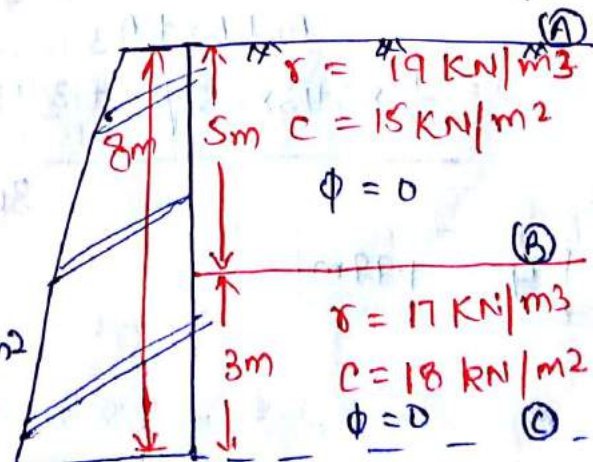 (A)
γ = 19 KN/m3
8m
5m
C = 15 KN/m2
ϕ = 0
(B)
γ = 17 KN/m3
m2
3m
C = 18 KN/m2
ϕ = 0
(C)